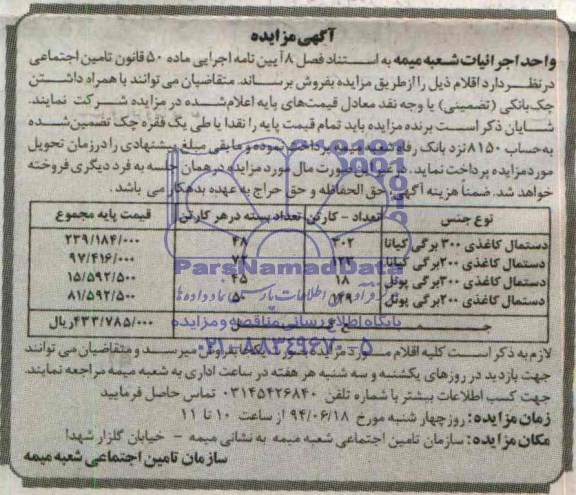 آگهی مزایده
واحد اجرائیات شعبه میمه به استناد فصل ۸ آیین نامه اجرایی ماده ۵۰ قانون تامین اجتماعی
در نظر دارد اقلام ذیل را از طریق مزایده بفروش برساند. متقاضیان می توانند با همراه داشتن
چک بانکی (تضمینی) یا وجه نقد معادل قیمت‌های پایه اعلام شده در مزایده شرکت نمایند.
شایان ذکر است برنده مزایده باید تمام قیمت پایه را نقدا یا طی یک فقره چک تضمین شده
به حساب ۸۱۵۰ نزد بانک رفاه شعبه میمه پرداخت نموده و مابقی مبلغ پیشنهادی را در زمان تحویل
مورد مزایده پرداخت نماید. در غیر این صورت مال مورد مزایده در همان جلسه به فرد دیگری فروخته
خواهد شد. ضمناً هزینه آگهی، حق الحفاظه و حق حراج به عهده بدهکار می باشد.
نوع جنس تعداد - کارتن تعداد بسته در هر کارتن قیمت پایه مجموع
دستمال کاغذی ۳۰۰ برگی کیانا ۳۰۲ ۴۸ ۲۳۹/۱۸۴/۰۰۰
دستمال کاغذی ۲۰۰ برگی کیانا ۱۲۳ ۷۲ ۹۷/۴۱۶/۰۰۰
دستمال کاغذی ۳۰۰ برگی پونل ۱۸ ۴۵ ۱۵/۵۹۲/۵۰۰
دستمال کاغذی ۲۰۰ برگی پونل ۱۴۹ ۵۰ ۸۱/۵۹۲/۵۰۰
جمع ۴۳۳/۷۸۵/۰۰۰ ریال
ParsNamadData
پایگاه اطلاع رسانی مناقصه و مزایده
۰۲۱-۸۸۳۴۹۶۷۰-۵
لازم به ذکر است کلیه اقلام مورد مزایده بصورت یکجا بفروش میرسد و متقاضیان می توانند
جهت بازدید در روزهای یکشنبه و سه شنبه هر هفته در ساعت اداری به شعبه میمه مراجعه نمایند.
جهت کسب اطلاعات بیشتر با شماره تلفن ۰۳۱۴۵۴۲۶۸۴۰ تماس حاصل فرمایید
زمان مزایده: روز چهار شنبه مورخ ۹۴/۰۶/۱۸ از ساعت ۱۰ تا ۱۱
مکان مزایده: سازمان تامین اجتماعی شعبه میمه به نشانی میمه - خیابان گلزار شهدا
سازمان تامین اجتماعی شعبه میمه